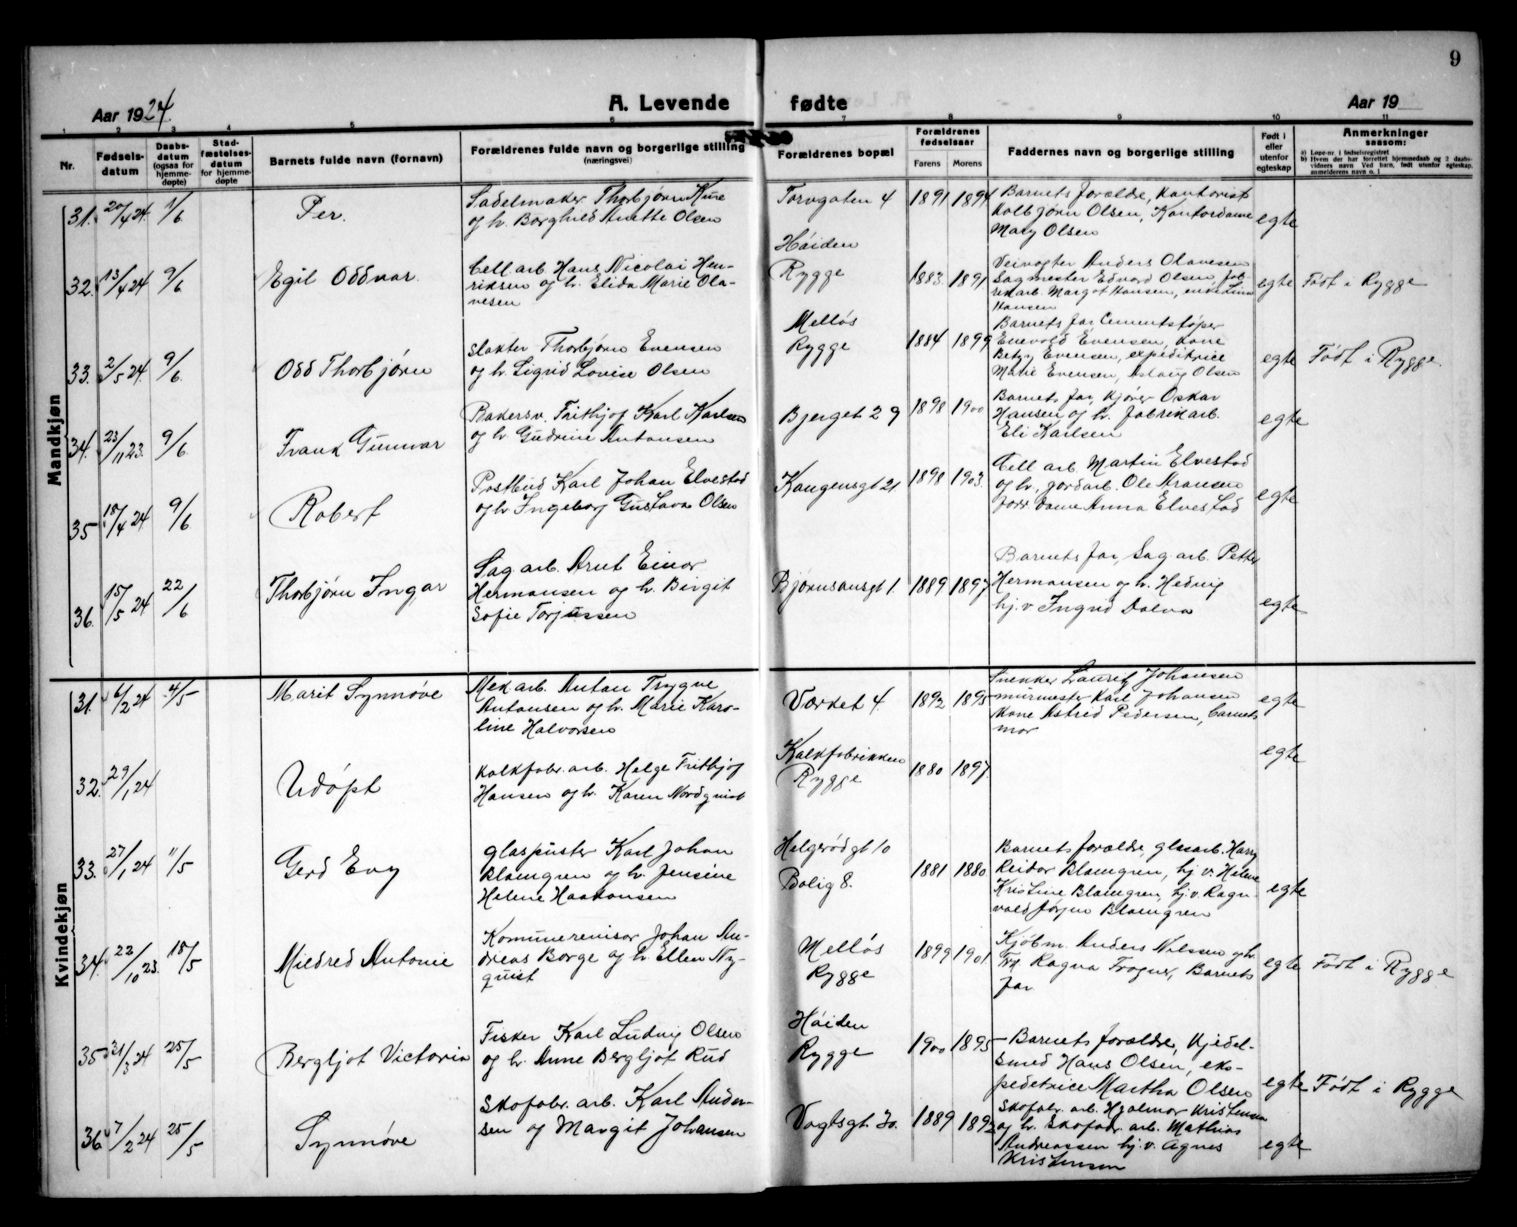 9
Aar 1924. A. Levende fødte Aar 19
1 2 3 4 5 6 7 8 9 10 11
Nr. Fødsels-datum Daabs-datum (ogsaa for hjemme-døpte) Stad-fæstelses-datum for hjemme-døpte Barnets fulde navn (fornavn) Forældrenes fulde navn og borgerlige stilling (næringsvei) Forældrenes bopæl Forældrenes fødselsaar Farens Morens Faddernes navn og borgerlige stilling Født i eller utenfor egteskap Anmerkninger saasom:
a) Løpe-nr. i fødselsregistret
b) Hvem der har forrettet hjemmedaab og 2 daabsvidners navn Ved barn, født utenfor egteskap, anmelderens navn o. l
Mandkjøn
31. 20/4 24. 1/6 Per.
Sadelmaker Thorbjørn Kure
og h. Borghild Anette Olsen
Torvgaten 4 1891 1894
Barnets forældre, Kontorist
Kolbjørn Olsen, Kontordame
Mary Olsen
egte
32. 13/4 24 9/6 Egil Oddvar.
Cell arb. Hans Nicolai Hen-
riksen og h. Elida Marie Ola-
vesen
Høiden
Rygge
1883. 1891
Veivogter Anders Olavesen
Sagmester Edvard Olsen, fab-
rikarb. Margot Hansen,
Hansen
egte Født i Rygge
33. 2/5 24. 9/6. Odd Thorbjørn
Slakter Thorbjørn Evensen
og h. Sigrid Lovise Olsen
Melløs
Rygge
1884 1899
Barnets far Cementstøper
Enevold Evensen, kone
Betzy Evensen, expeditrice
Marie Evensen, Aslaug Olsen
egte Født i Rygge.
34. 23/11 23. 9/6. Frank Gunvar
Bakersv. Frithjof Karl Karlsen
og h. Gudrine Antonsen
Bjerget 29 1898 1900
Barnets far, kjører Oskar
Hansen og h. fabrikarb.
Eli Karlsen
egte
35 18/4 24 9/6 Robert
Postbud Karl Johan Elvestad
og h. Ingeborg Gustava Olsen
Kongensgt 21 1898 1903.
Cell arb. Martin Elvestad
og h., jordarb. Ole Aronsen
forr. Dame Anna Elvestad
egte
36. 15/5 24 22/6 Thorbjørn Ingar
Sag. arb. Arnt Einar
Hermansen og h. Birgit
Sofie Torjussen
Bjørnsonsgt 1. 1889 1897
Barnets far, Sag. arb. Petter
Hermansen og h. Hedvig
hj. v Ingrid Dalva
egte
Kvindekjøn
31. 6/2 24 4/5 Marit Synnøve
Mek arb. Anton Trygve
Antonsen og h. Marie Karo-
line Halvorsen
Værket 4. 1892 1895
Snekker Lauritz Johansen
murmester Karl Johansen
Kone Astrid Pedersen, barnets
mor
egte
32. 29/1 24 Udøpt
Kalkfabr. arb. Helge Frithjof
Hansen og h. Karen Nordqvist
Kalkfabrikken
Rygge
1880 1897 egte
33. 27/1 24 11/5 Gerd Evy
Glaspuster Karl Johan
Blomgren og h. Jensine
Helene Haakonsen
Helgerødgt 10
Bolig 8.
1881 1880
Barnets forældre, glasarb. Harry
Reidar Blomgren, hj. v. Helene
Kristine Blomgren, hj. v. Ragn-
vald Jørgen Blomgren
egte
34 22/10 23. 18/5 Mildred Antonie
Kommunerevisor Johan An-
dreas Borge og h. Ellen Ny-
quist
Melløs
Rygge
1899 1901
Kjøbm. Anders Nilsen og h.
Frk Ragna Trogner, Barnets
far
egte Født i Rygge
35 21/3 24 25/5 Bergljot Victoria
Fisker Karl Ludvig Olsen
og h. Anne Bergljot Rud
Høiden
Rygge
1900 1895
Barnets forældre, Kjedel-
smed Hans Olsen, eks-
pedetrice Martha Olsen
egte Født i Rygge
36 7/2 24 25/5 Synnøve
Skofabr. arb. Karl Ander-
sen og Margit Johansen
Vogtsgt 30. 1889 1892
Skofabr. arb. Hjalmar Kristensen
og h. Skofabr. arb. Mathias
Andreassen hj. v. Agnes
Kristensen
egte